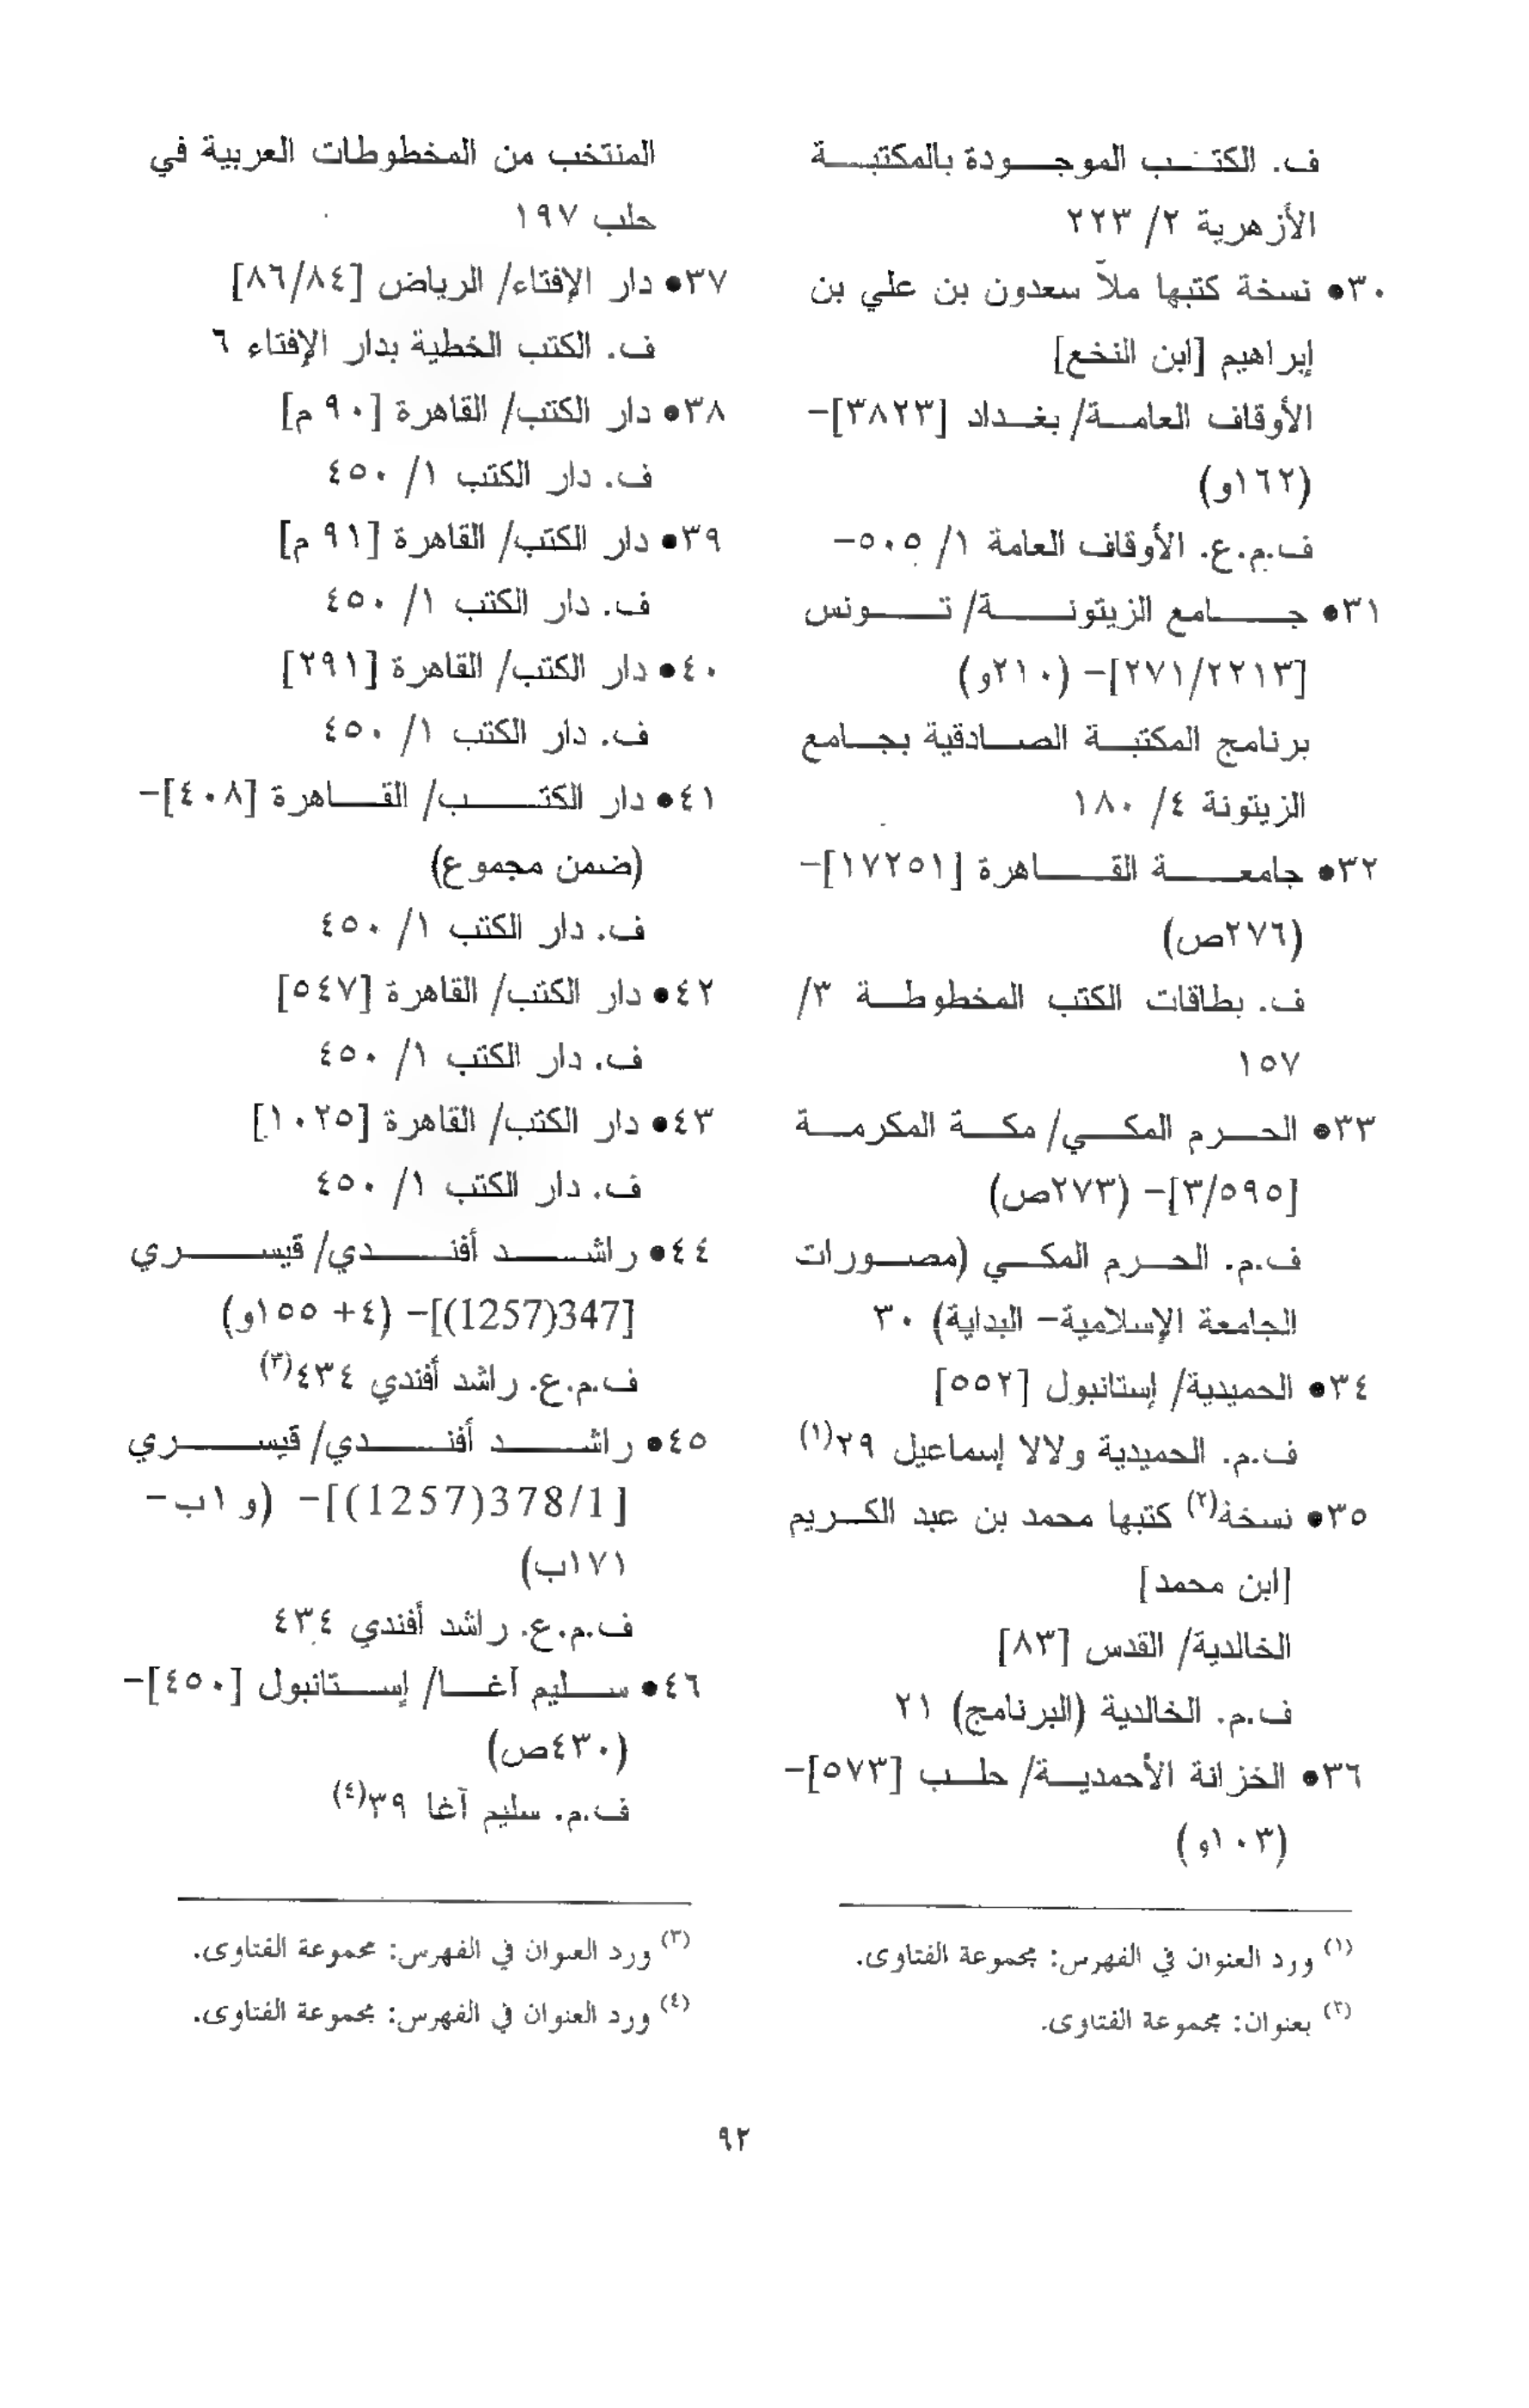 ف. الكتب الموجودة بالمكتبة
الأزهرية ٢/ ٢٢٣
٣٠● نسخة كتبها ملاّ سعدون بن علي بن
إبراهيم [ابن النخع]
الأوقاف العامة/ بغداد [٣٨٢٣]-
(١٦٢و)
ف.م.ع. الأوقاف العامة ١/ ٥٠٥-
٣١● جامع الزيتونة/ تونس
[٢٧١/٢٢١٣]- (٢١٠و)
برنامج المكتبة الصادقية بجامع
الزيتونة ٤/ ١٨٠
٣٢● جامعة القاهرة [١٧٢٥١]-
(٢٧٦ص)
ف. بطاقات الكتب المخطوطة ٣/
١٥٧
٣٣● الحرم المكي/ مكة المكرمة
[٣/٥٩٥]- (٢٧٣ص)
ف.م. الحرم المكي (مصورات
الجامعة الإسلامية- البداية) ٣٠
٣٤● الحميدية/ إستانبول [٥٥٢]
ف.م. الحميدية ولالا إسماعيل ٢٩(١)
٣٥● نسخة(٢) كتبها محمد بن عبد الكريم
[ابن محمد]
الخالدية/ القدس [٨٣]
ف.م. الخالدية (البرنامج) ٢١
٣٦● الخزانة الأحمدية/ حلب [٥٧٣]-
(١٠٣و)
(١) ورد العنوان في الفهرس: مجموعة الفتاوى.
(٢) بعنوان: مجموعة الفتاوى.
المنتخب من المخطوطات العربية في
حلب ١٩٧
٣٧● دار الإفتاء/ الرياض [٨٦/٨٤]
ف. الكتب الخطية بدار الإفتاء ٦
٣٨● دار الكتب/ القاهرة [٩٠ م]
ف. دار الكتب ١/ ٤٥٠
٣٩● دار الكتب/ القاهرة [٩١ م]
ف. دار الكتب ١/ ٤٥٠
٤٠● دار الكتب/ القاهرة [٢٩١]
ف. دار الكتب ١/ ٤٥٠
٤١● دار الكتب/ القاهرة [٤٠٨]-
(ضمن مجموع)
ف. دار الكتب ١/ ٤٥٠
٤٢● دار الكتب/ القاهرة [٥٤٧]
ف. دار الكتب ١/ ٤٥٠
٤٣● دار الكتب/ القاهرة [١٠٢٥]
ف. دار الكتب ١/ ٤٥٠
٤٤● راشد أفندي/ قيسري
[347(1257)]- (٤+ ١٥٥و)
ف.م.ع. راشد أفندي ٤٣٤(٣)
٤٥● راشد أفندي/ قيسري
[378/1(1257)]- (و ١ب-
١٧١ب)
ف.م.ع. راشد أفندي ٤٣٤
٤٦● سليم آغا/ إستانبول [٤٥٠]-
(٤٣٠ص)
ف.م. سليم آغا ٣٩(٤)
(٣) ورد العنوان في الفهرس: مجموعة الفتاوى.
(٤) ورد العنوان في الفهرس: مجموعة الفتاوى.
٩٢